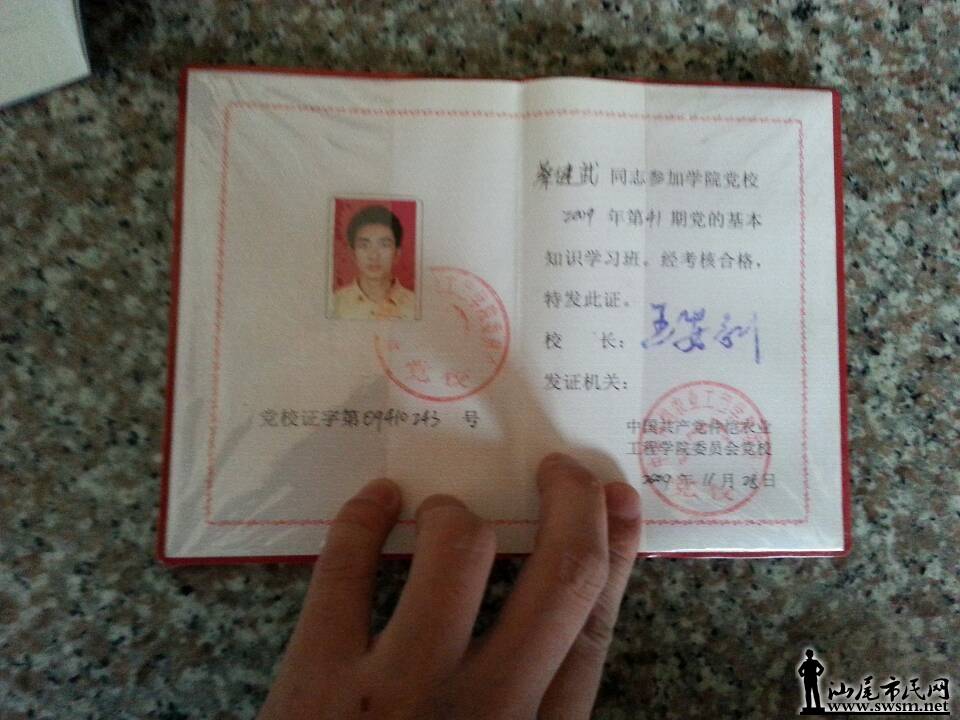 党校证字第09410243 号
蔡健武 同志参加学院党校
2009 年第41期党的基本
知识学习班。经考核合格,
特发此证。
校 长:
发证机关:
中国共产党仲恺农业
工程学院委员会党校
2009年11月28日
党校
党校
汕尾市民网
www.swsm.net